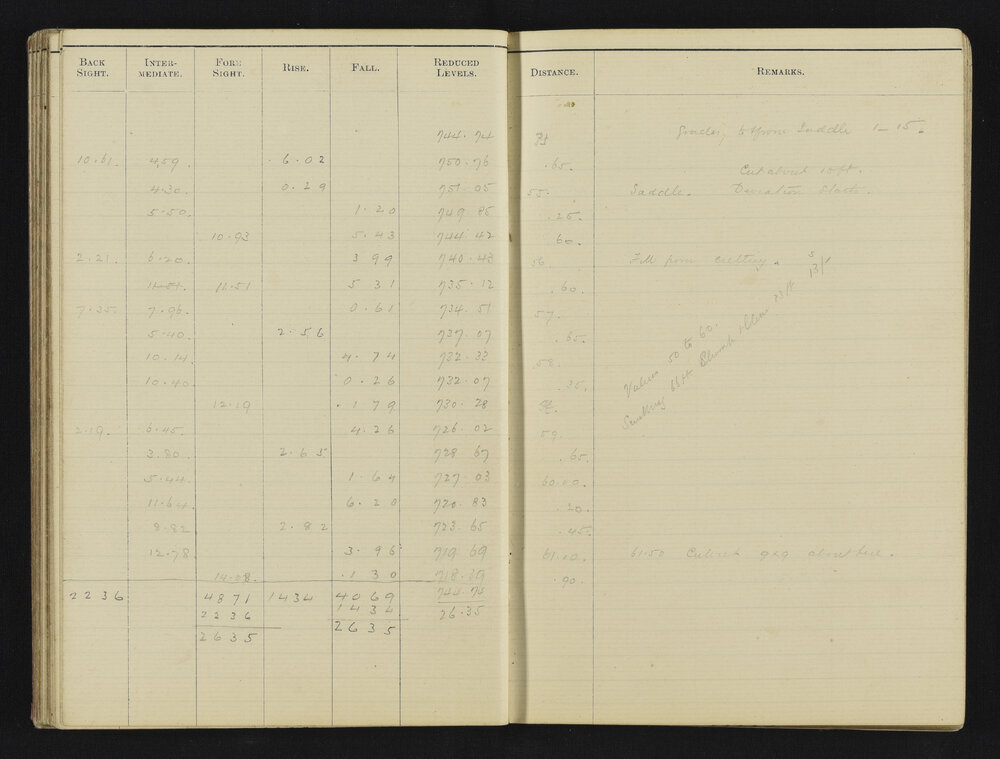 BACK SIGHT. INTER-MEDIATE. FORE SIGHT. RISE. FALL. REDUCED LEVELS. DISTANCE. REMARKS.
744.74 Grades, to from Saddle 1 – 15.
10.61. 4.59. 6.02 750.76 .65. Cut about 10 ft.
4.30. 0.29 751.05 55. Saddle. Deviation Starts.
5.50. 1.20 749.85 .25.
10.93 5.43 744.42 .60.
2.21. 6.20 3 99 740.43 56 Fill from cutting.
11.51 11.51 5 31 735.12 .60.
7.35. 7.96. 0.61 734.51 57.
5.40. 2.56 737.07 .65.
10.14 4.74 732.33 58.
10.40 0.26 732.07 .35.
12.19 .179 730.28
2.19. 6.45. 4.26 726.02 59.
3.80 2.65 728.67 .65.
5.44 1.64 727.03 60.10.
11.64. 6.20 720.83 .20.
8.82 2.82 723.65 .45.
12.78 3.96 719.69 61.10. 61.50 Culvert 9x9 about here.
14.08. .130 718.39 .90.
2236 4871 1434 4069 744.74
2236 1434 26.35
2635 2635
50 to 60.